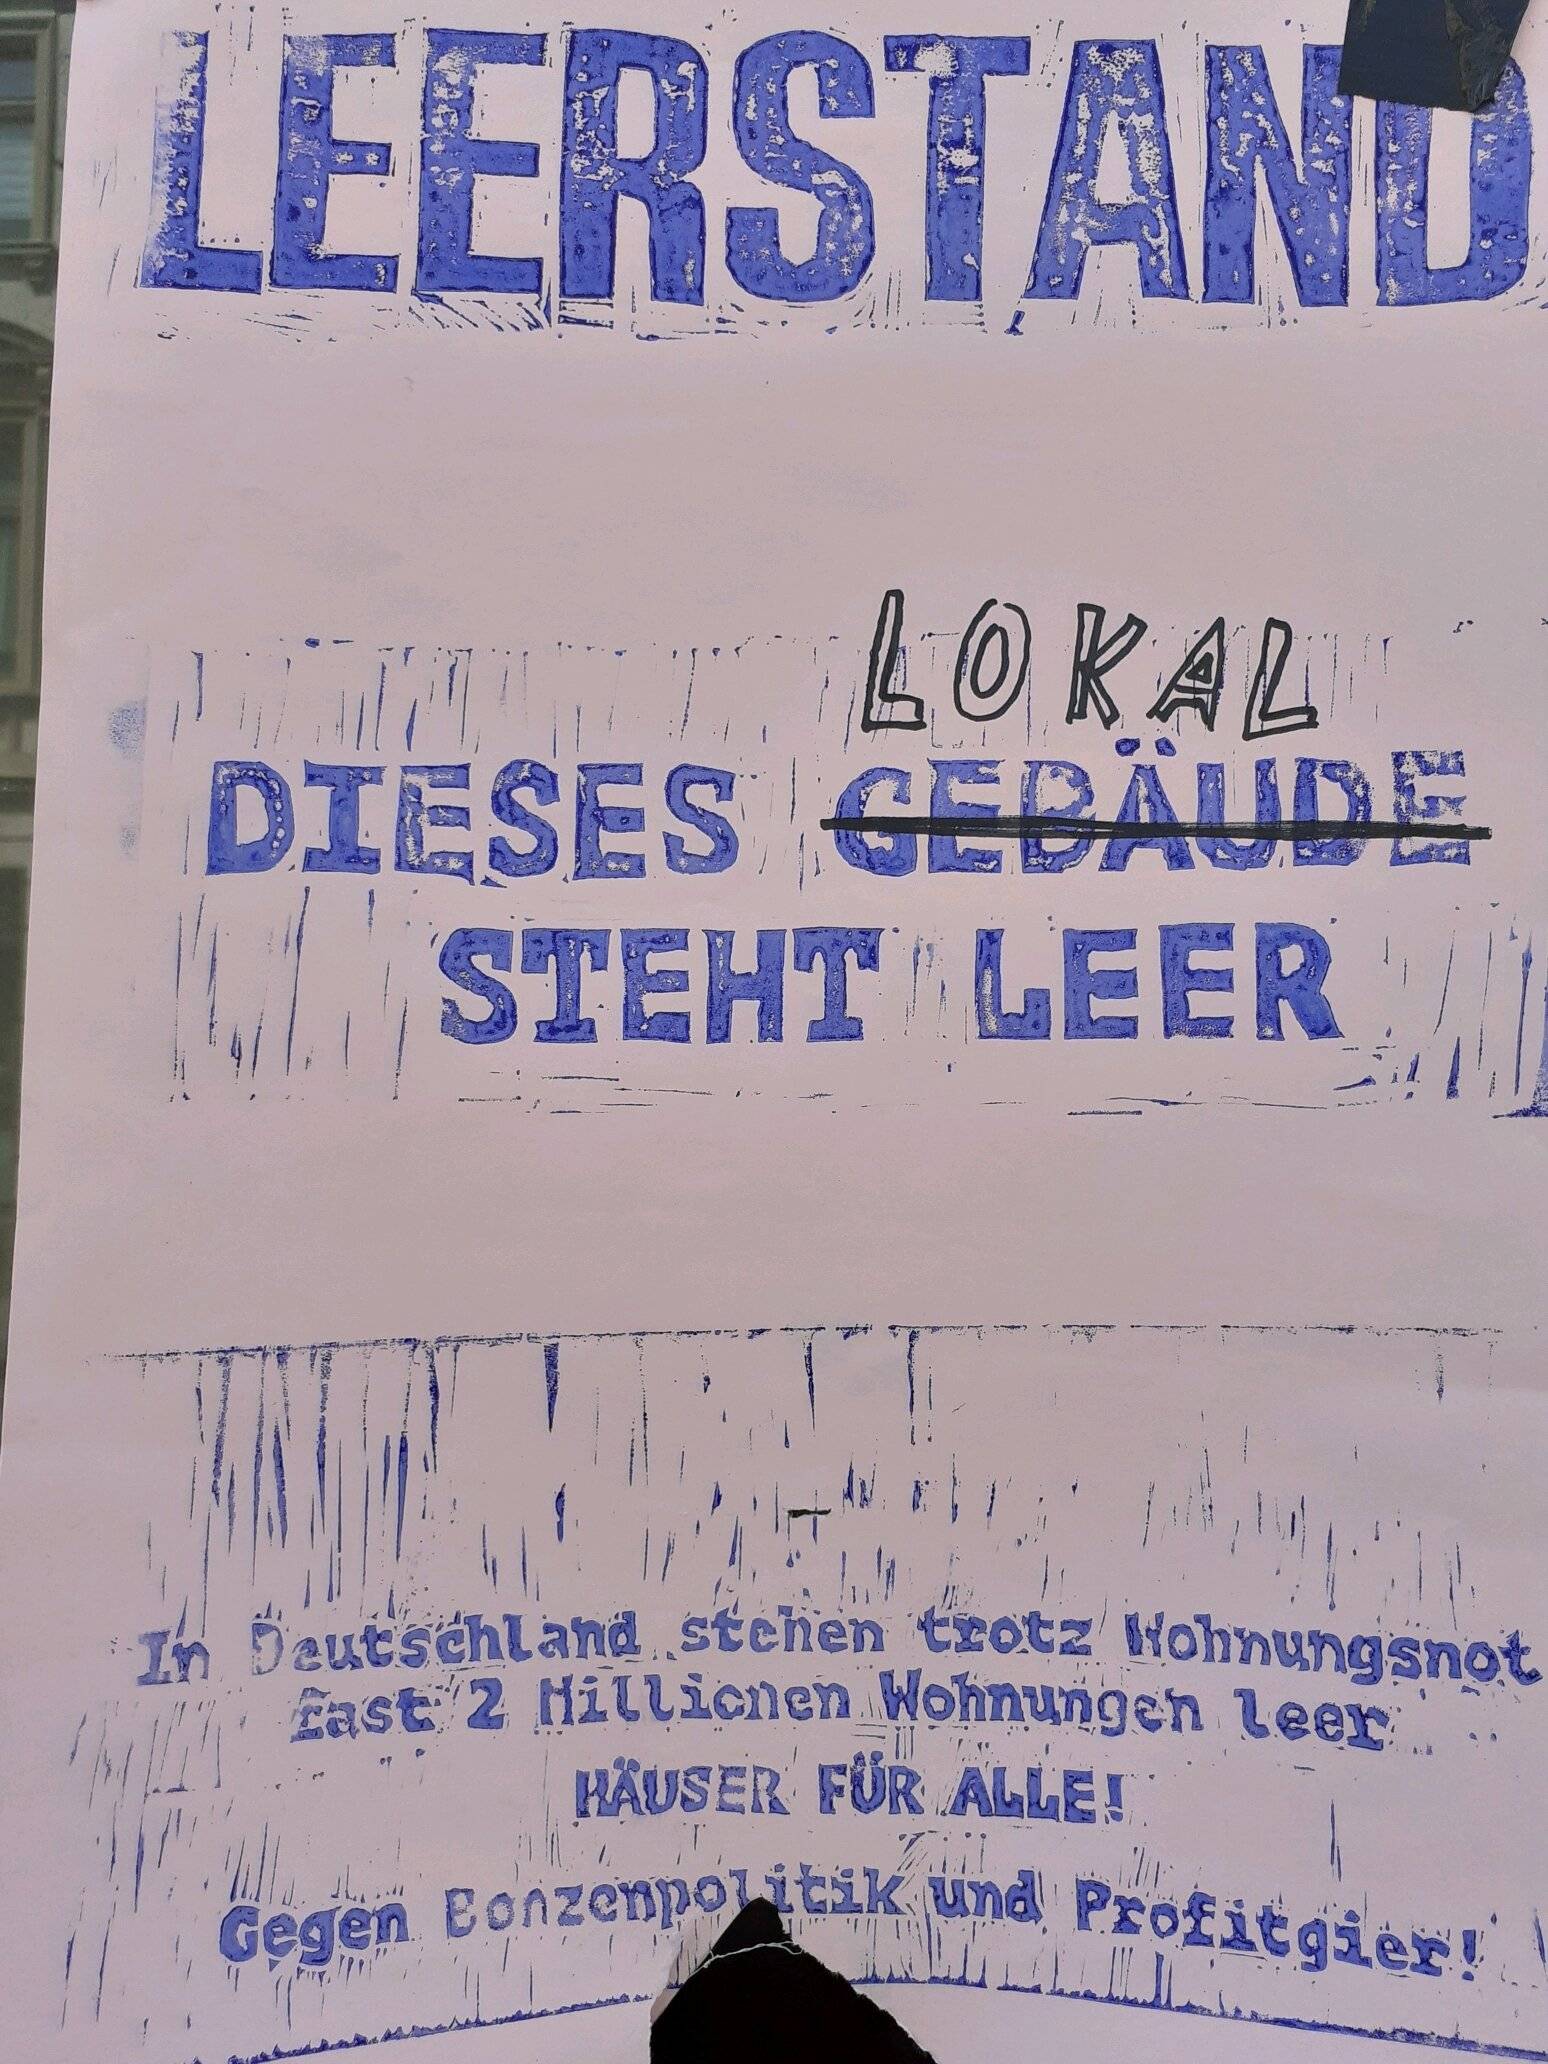 LEERSTAND
LOKAL
DIESES GEBÄUDE
STEHT LEER
In Deutschland stehen trotz Wohnungsnot
fast 2 Millionen Wohnungen leer
HÄUSER FÜR ALLE!
Gegen Bonzenpolitik und Profitgier!